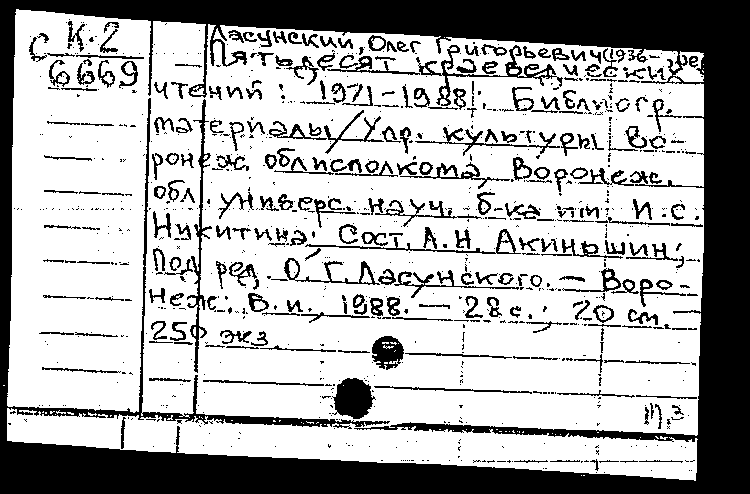 К-2
С 6669
Ласунский, Олег Григорьевич (1936- , ре
Пятьдесят краеведческих
чтений : 1971-1988 : Библиогр.
материалы / Упр. культуры Во-
ронеж. облисполкома, Воронеж.
обл. универс. науч. б-ка им. И.С.
Никитина; Сост. А.Н. Акиньшин;
Под ред. О.Г. Ласунского. — Воро-
неж: Б.и., 1988. — 28 с.; 20 см. —
250 экз.